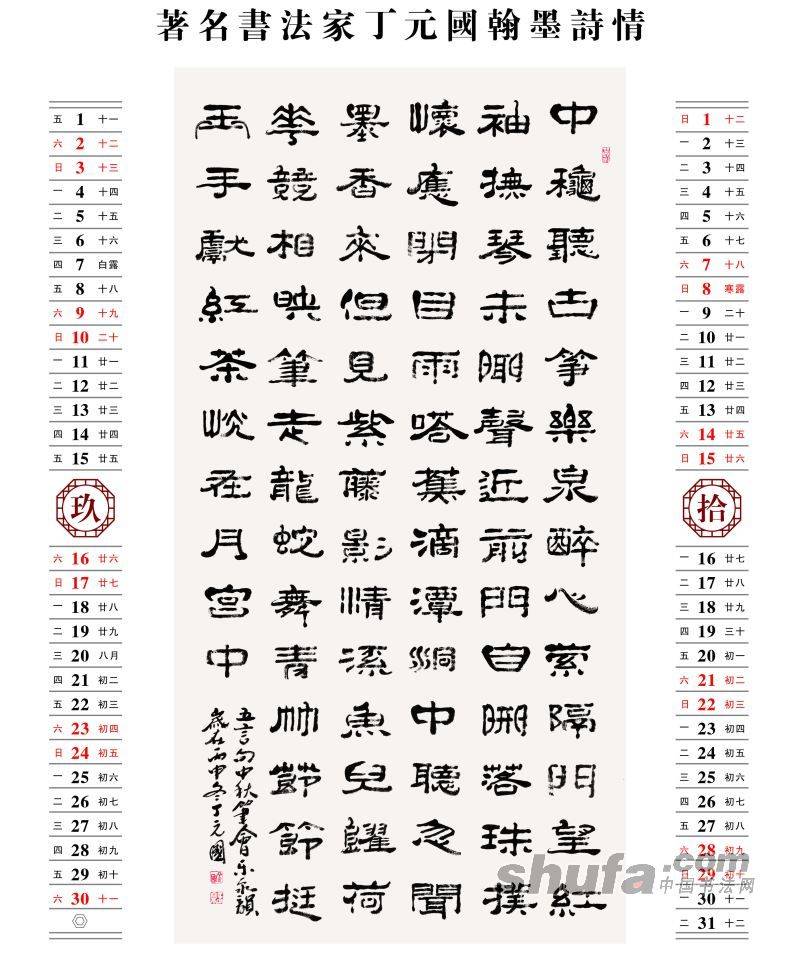 著名書法家丁元國翰墨詩情
五 1 十一
六 2 十二
日 3 十三
一 4 十四
二 5 十五
三 6 十六
四 7 白露
五 8 十八
六 9 十九
日 10 二十
一 11 廿一
二 12 廿二
三 13 廿三
四 14 廿四
五 15 廿五
玖
六 16 廿六
日 17 廿七
一 18 廿八
二 19 廿九
三 20 八月
四 21 初二
五 22 初三
六 23 初四
日 24 初五
一 25 初六
二 26 初七
三 27 初八
四 28 初九
五 29 初十
六 30 十一
中穐聽古箏樂泉醉心縈隔門望紅
袖撫琴未聲近前門自開落珠撲
懷應閉目雨嗒蕉滴潭澗中聽忽聞
墨香來但見紫藤影情溪魚兒躍荷
花競相映筆走龍蛇舞青竹節節挺
玉手獻紅茶恍在月宮中
五言句中秋筆會樂泉韻
歲在丙申冬丁元國
日 1 十二
一 2 十三
二 3 十四
三 4 十五
四 5 十六
五 6 十七
六 7 十八
日 8 寒露
一 9 二十
二 10 廿一
三 11 廿二
四 12 廿三
五 13 廿四
六 14 廿五
日 15 廿六
拾
一 16 廿七
二 17 廿八
三 18 廿九
四 19 三十
五 20 初一
六 21 初二
日 22 初三
一 23 初四
二 24 初五
三 25 初六
四 26 初七
五 27 初八
六 28 初九
日 29 初十
一 30 十一
二 31 十二
shufa.com
中国书法网